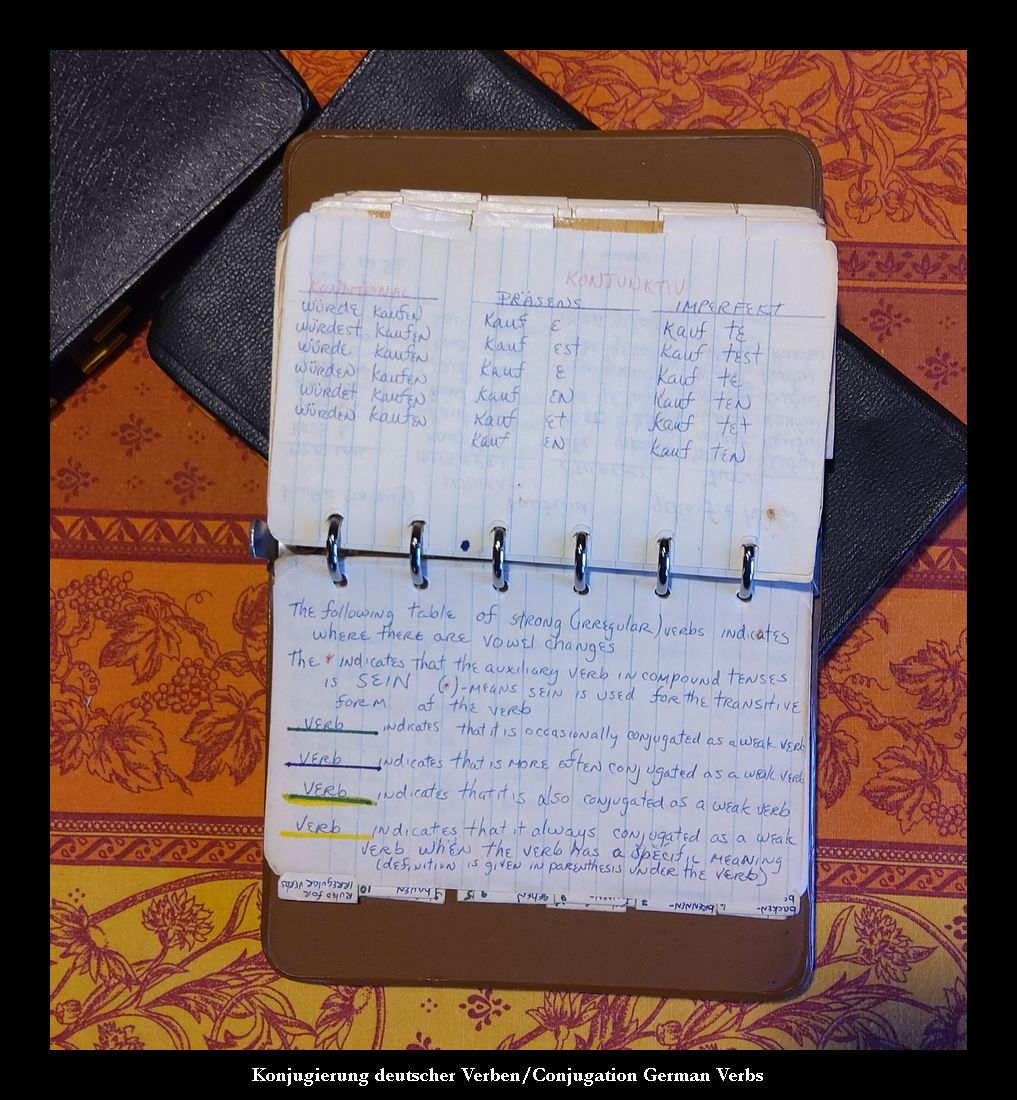 KONJUNKTIV
KONDITIONAL PRÄSENS IMPERFEKT
WÜRDE kaufen kauf e kauf te
WÜRDEST kaufen kauf est kauf test
WÜRDE kaufen kauf e kauf te
WÜRDEN kaufen kauf en kauf ten
WÜRDET kaufen kauf et kauf tet
WÜRDEN kaufen kauf en kauf ten
The following table of strong (irregular) verbs indicates
where there are vowel changes
The * indicates that the auxiliary verb in compound tenses
is SEIN (*)-means sein is used for the transitive
form of the verb
VERB indicates that it is occasionally conjugated as a weak verb
VERB indicates that is more often conjugated as a weak verb
VERB indicates that it is also conjugated as a weak verb
VERB indicates that it always conjugated as a weak
verb when the verb has a specific meaning
(definition is given in parenthesis under the verb)
RULES FOR
IRREGULAR VERBS
10
gehen
9
BRENNEN-
backen-
Konjugierung deutscher Verben/Conjugation German Verbs